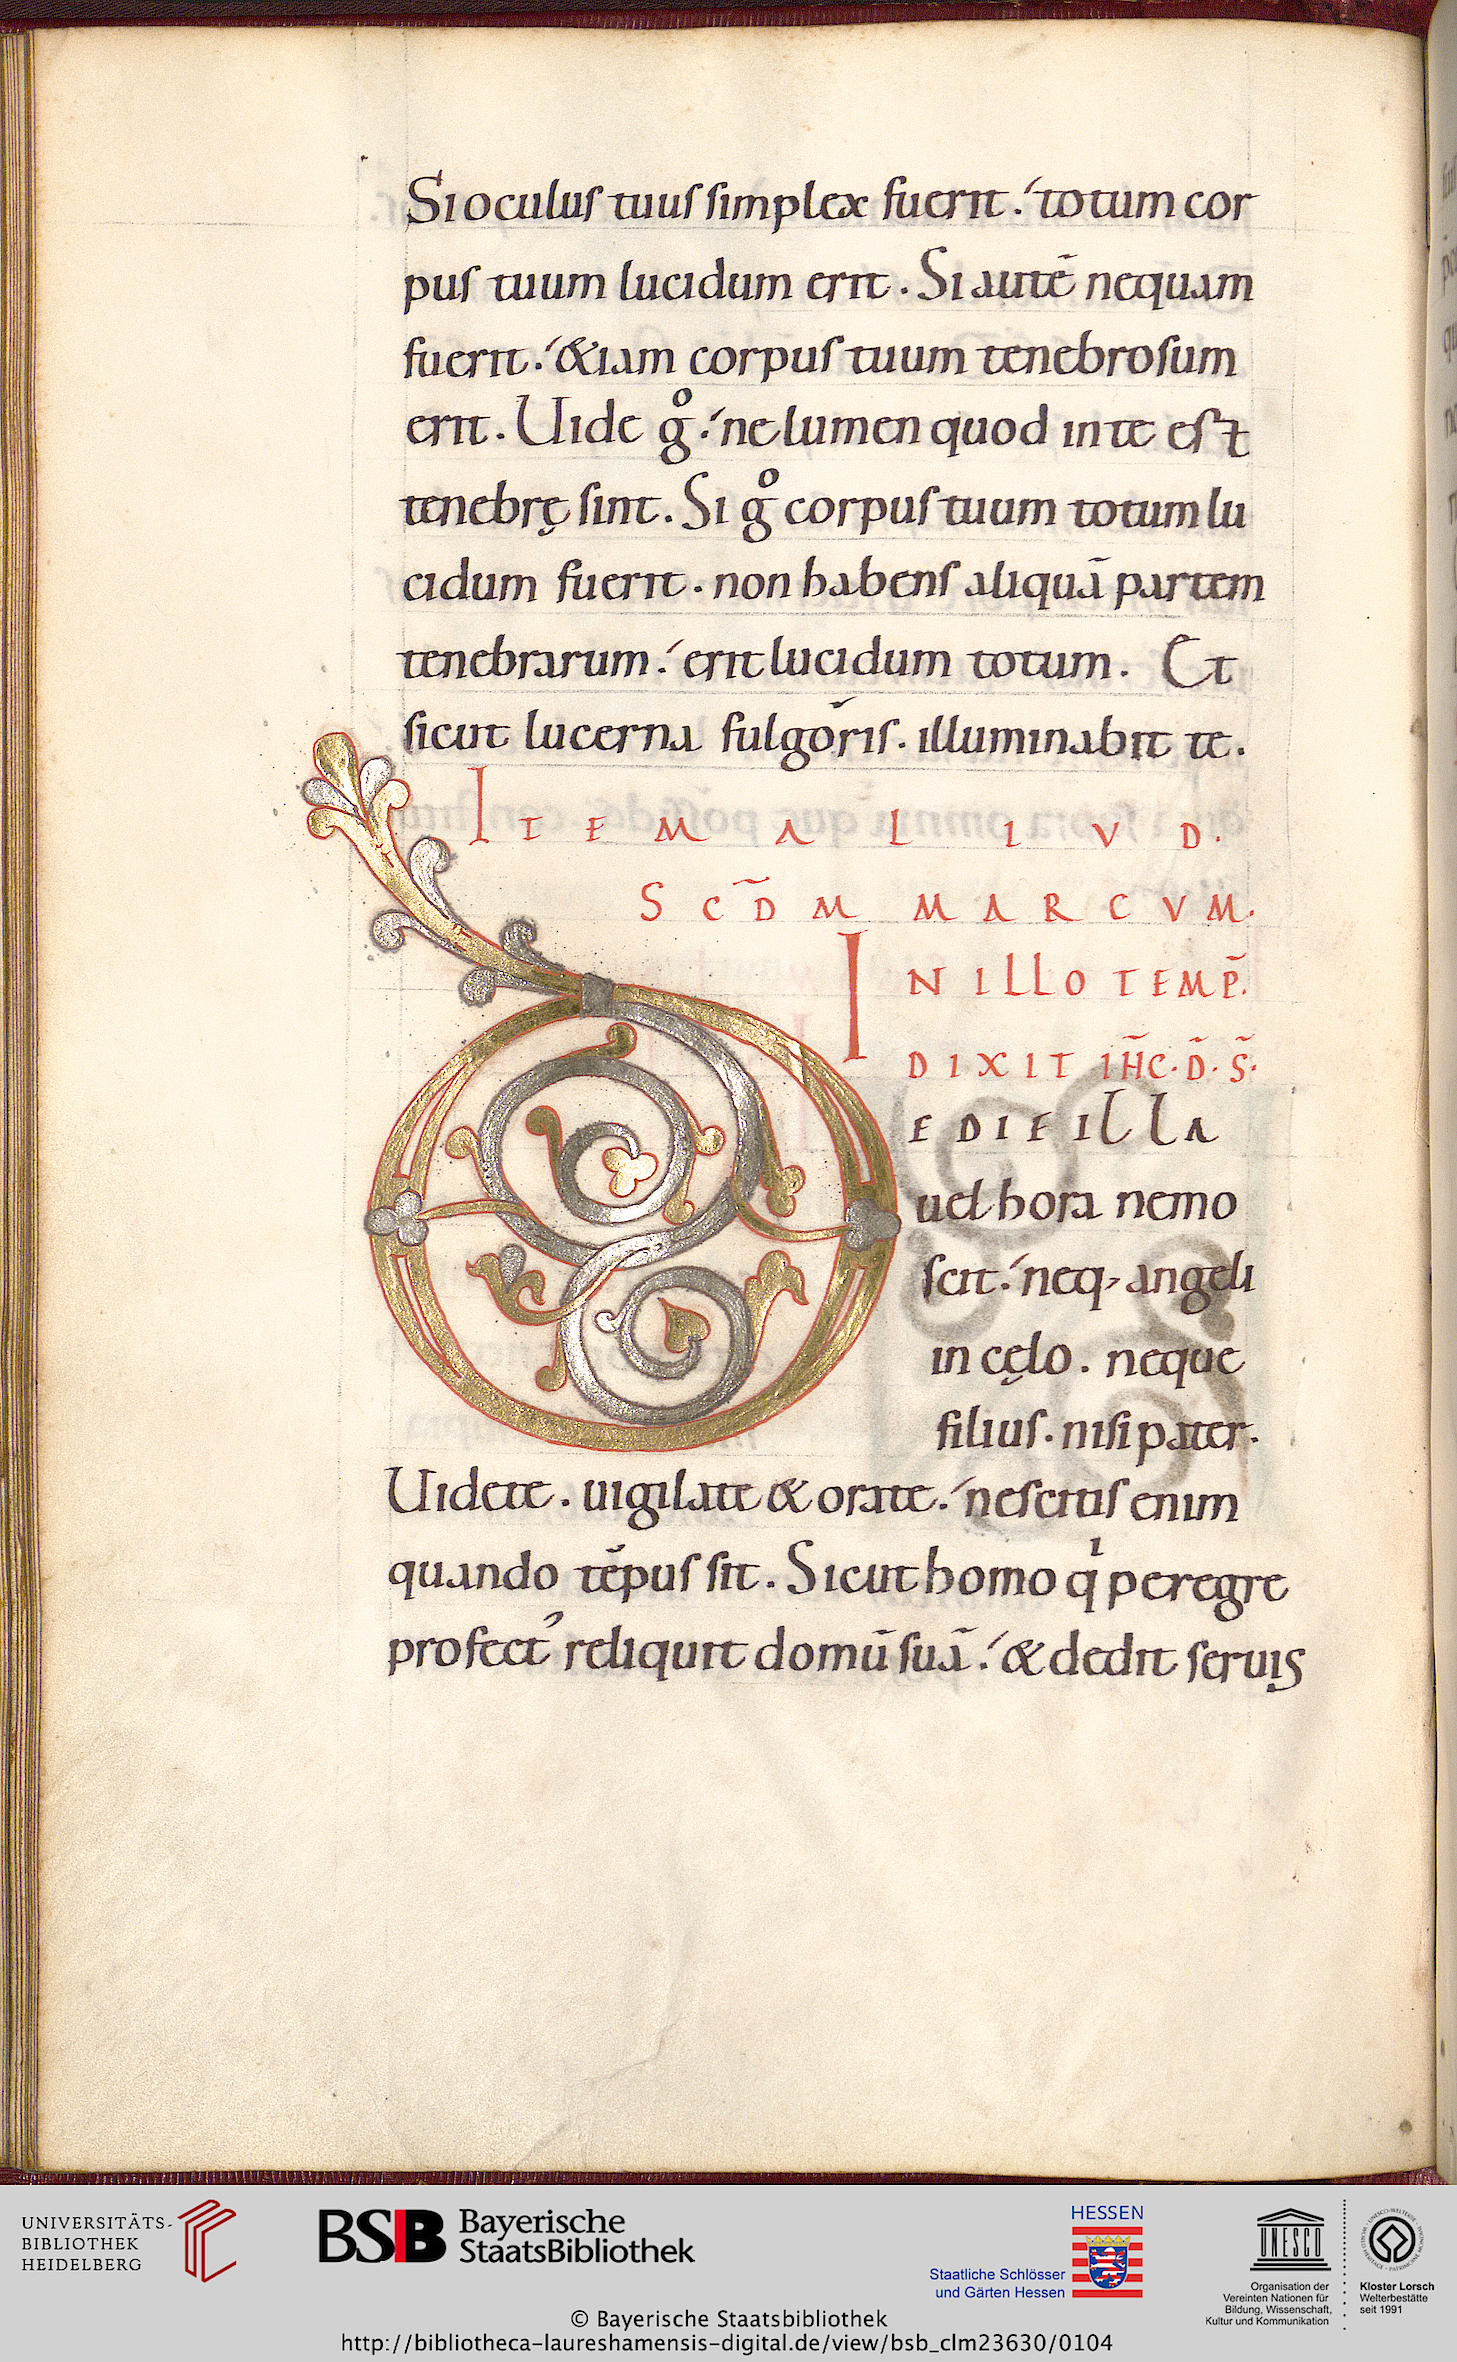 Si oculus tuus simplex fuerit. totum cor
pus tuum lucidum erit. Si autē nequam
fuerit. &iam corpus tuum tenebrosum
erit. Uide gͦ. ne lumen quod in te est
tenebrę sint. Si gͦ corpus tuum totum lu
cidum fuerit. non habens aliquā partem
tenebrarum. erit lucidum totum. Et
sicut lucerna fulgoris. illuminabit te.
ITEM ALIVD.
SCD̄M MARCVM.
IN ILLO TEMP̄.
DIXIT IH̄C. D̄. S̄.
D E DIE ILLA
uel hora nemo
scit. neq; angeli
in cęlo. neque
filius. nisi pater.
Uidete. uigilate & orate. nescitis enim
quando tēpus sit. Sicut homo qⁱ peregre
profect᾽ reliquit domū suā. & dedit seruis
UNIVERSITÄTS-
BIBLIOTHEK
HEIDELBERG
BSB Bayerische
StaatsBibliothek
HESSEN
Staatliche Schlösser
und Gärten Hessen
UNESCO
Organisation der
Vereinten Nationen für
Bildung, Wissenschaft,
Kultur und Kommunikation
Kloster Lorsch
Welterbestätte
seit 1991
© Bayerische Staatsbibliothek
http://bibliotheca-laureshamensis-digital.de/view/bsb_clm23630/0104